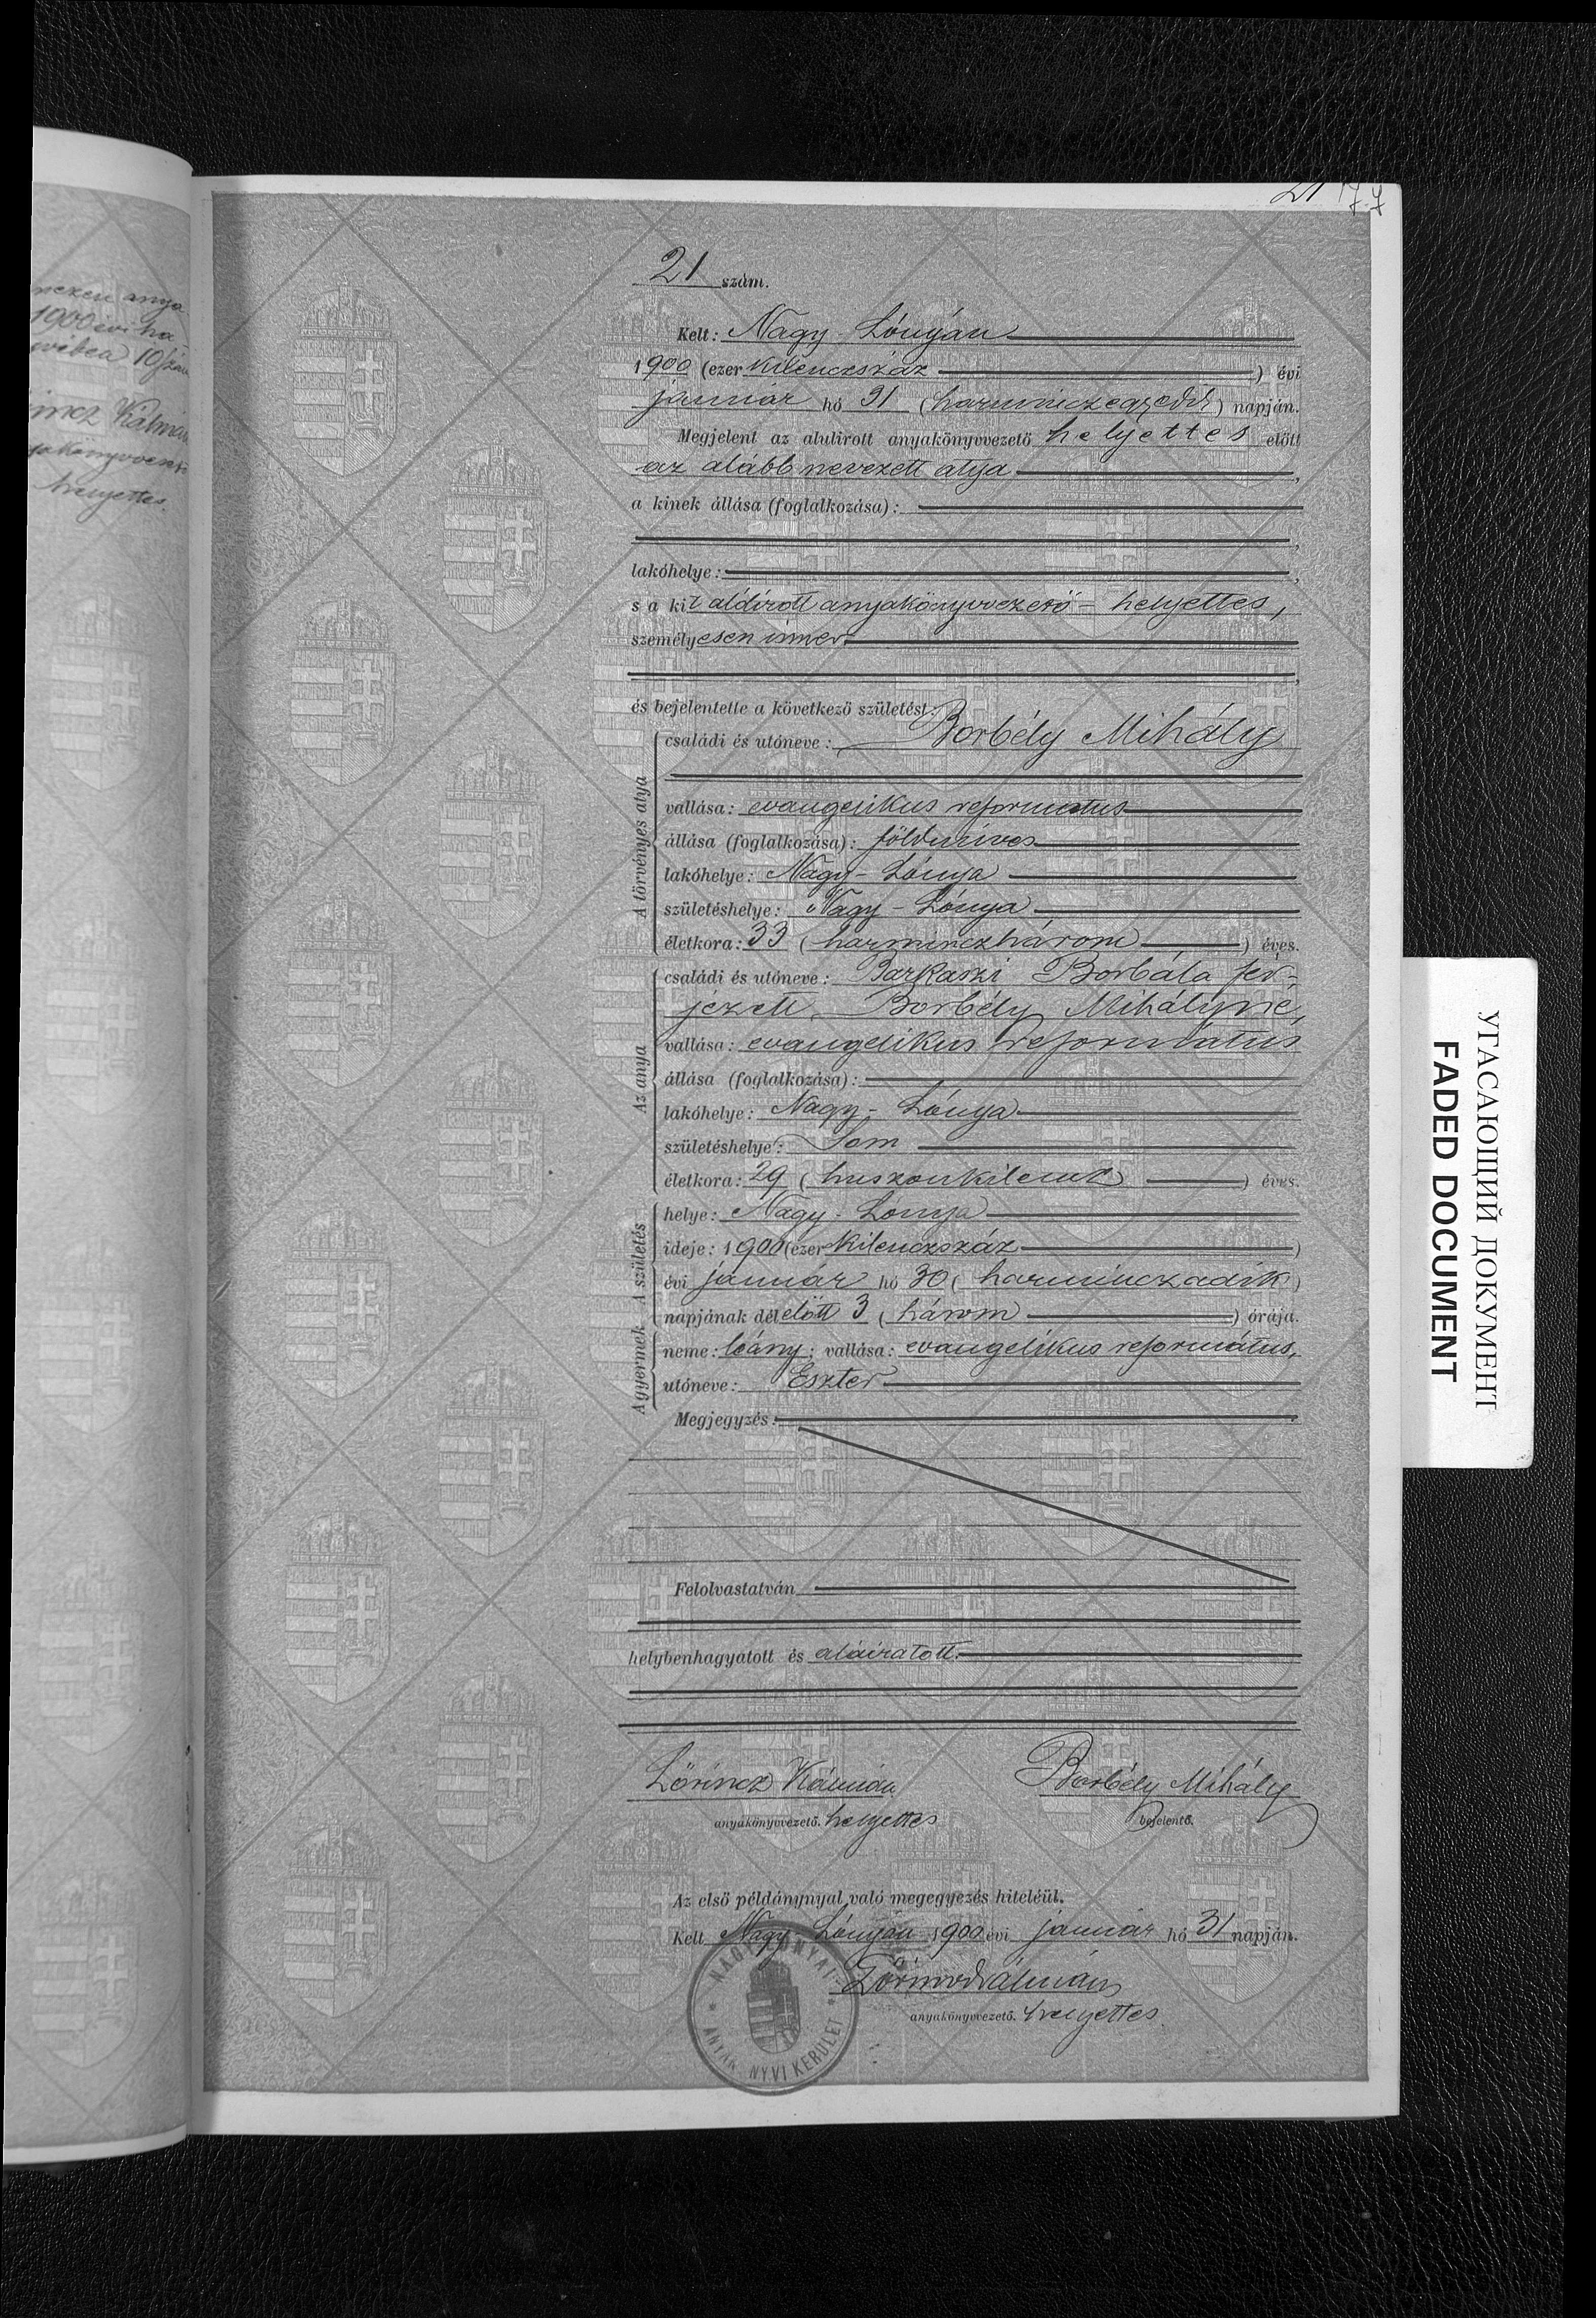 21 77
21 szám.
Kelt: Nagy-Lónyán
1900 (ezer kilenczszáz) évi
január hó 31 (harminczegyedik) napján.
Megjelent az alulirott anyakönyvvezető helyettes előtt
az alább nevezett atya,
a kinek állása (foglalkozása):
lakóhelye:
s a kit aldírott anyakönyvvezető-helyettes,
személyesen ismer
és bejelentette a következő születést:
A törvényes atya
családi és utóneve: Borbély Mihály
vallása: evangelikus reformatus
állása (foglalkozása): földmíves
lakóhelye: Nagy-Lónya
születéshelye: Nagy-Lónya
életkora: 33 (harminczhárom) éves.
Az anya
családi és utóneve: Barkaszi Borbála fér-
jezett Borbély Mihályné,
vallása: evangelikus református
állása (foglalkozása):
lakóhelye: Nagy-Lónya
születéshelye: Som
életkora: 29 (huszonkilencz) éves.
A gyermek A születés
helye: Nagy-Lónya
ideje: 1900 (ezer kilenczszáz)
évi január hó 30 (harminczadik)
napjának délelőtt 3 (három) órája.
neme: leány; vallása: evangelikus református,
utóneve: Eszter
Megjegyzés:
Felolvastatván
helybenhagyatott és aláíratott.
Lőrincz Kálmán Borbély Mihály
anyakönyvvezető. helyettes bejelentő.
Az első példánynyal való megegyezés hiteléül.
Kelt Nagy Lónyán 1900 évi január hó 31 napján.
Lőrincz Kálmán
anyakönyvvezető. helyettes
NAGY LÓNYAI
ANYAKÖNYVI KERÜLET
anya
1900 évi
10
Kálmán
helyettes.
УГАСАЮЩИЙ ДОКУМЕНТ
FADED DOCUMENT